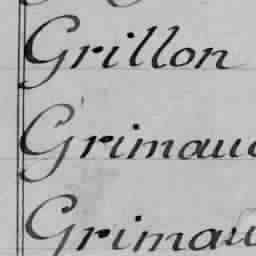 Grillon
Grimaud
Grimau